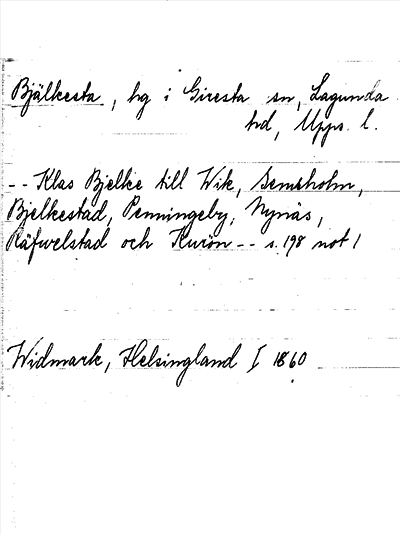 Bjälkesta, hg i Giresta sn, Lagunda
hd, Upps. l.
-- Klas Bjelke till Wik, Gemsholm,
Bjelkestad, Penningeby, Nynäs,
Räfwelstad och Kurön -- s. 198 not 1
Widmark, Helsingland I 1860